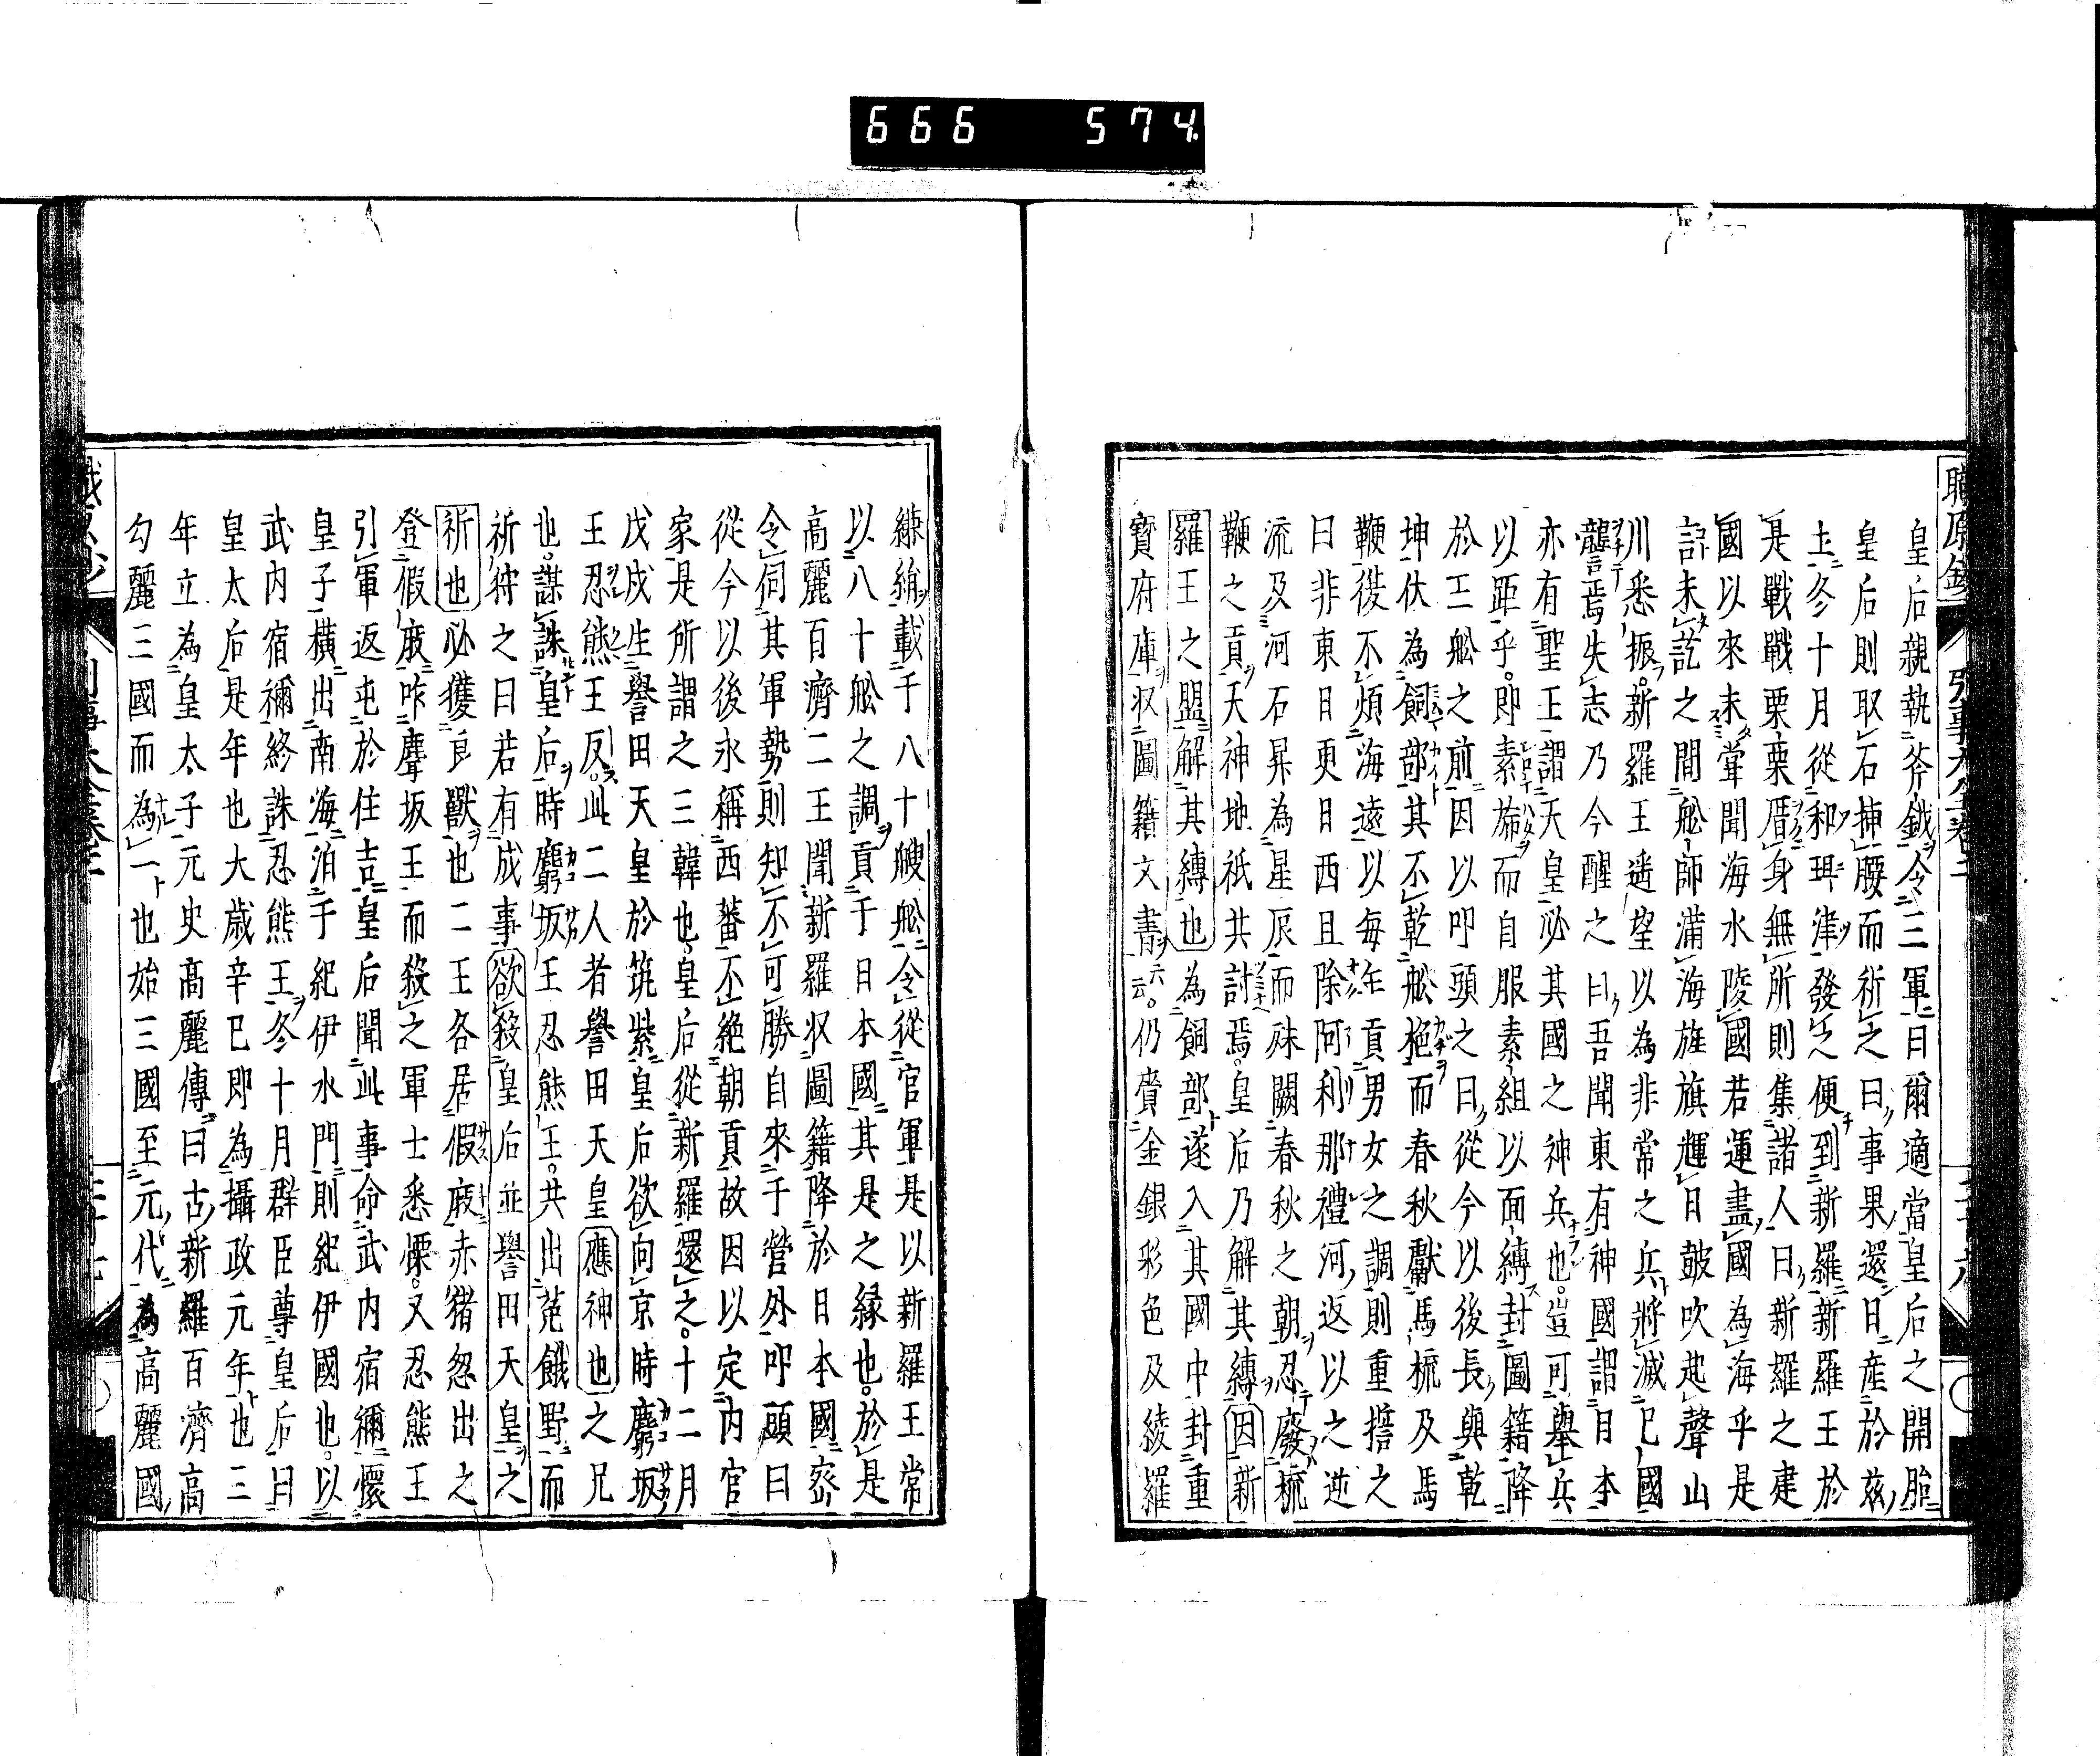 666 574
皇后親執斧鉞令三軍曰爾適當皇后之開胎
皇后則取石挿腰而祈之曰事果還日産於茲
土冬十月從和珥津發之便到新羅新羅王於
是戰戰栗栗厝身無所則集諸人曰新羅之建
國以來未嘗聞海水陵國若運盡國為海乎是
言未訖之間舩師滿海旌旗輝日皷吹起聲山
川悉振新羅王遙望以為非常之兵將滅已國
讋焉失志乃今醒之曰吾聞東有神國謂日本
亦有聖王謂天皇必其國之神兵也豈可擧兵
以距乎即素旆而自服素組以面縛封圖籍降
於王舩之前因以叩頭之曰從今以後長與乾
坤伏為飼部其不乾舩柂而春秋獻馬梳及馬
鞭復不煩海遠以毎年貢男女之調則重誓之
曰非東日更日西且除阿利那禮河返以之逆
流及河石昇為星辰而殊闕春秋之朝忍廢梳
鞭之貢天神地祇共討焉皇后乃解其縛因新
羅王之盟解其縛也為飼部遂入其國中封重
寶府庫収圖籍文書云云仍賚金銀彩色及綾羅
縑絹載于八十艘舩令從官軍是以新羅王常
以八十舩之調貢于日本國其是之縁也於是
高麗百濟二王聞新羅収圖籍降於日本國密
令伺其軍勢則知不可勝自來于營外叩頭曰
從今以後永稱西蕃不絶朝貢故因以定内官
家是所謂之三韓也皇后從新羅還之十二月
戊戌生譽田天皇於筑紫皇后欲向京時麛坂
王忍熊王反此二人者譽田天皇應神也之兄
也謀誅皇后時麛坂王忍熊王共出菟餓野而
祈狩之曰若有成事欲殺皇后並譽田天皇之
祈也必獲良獸也二王各居假庪赤猪忽出之
登假庪咋麛坂王而殺之軍士悉慄又忍熊王
引軍返屯於住吉皇后聞此事命武内宿禰懷
皇子横出南海泊于紀伊水門則紀伊國也以
武内宿禰終誅忍熊王冬十月群臣尊皇后曰
皇太后是年也大歳辛巳即為攝政元年也三
年立為皇太子元史高麗傳曰古新羅百濟高
勾麗三國而為一也始三國至元代為高麗國